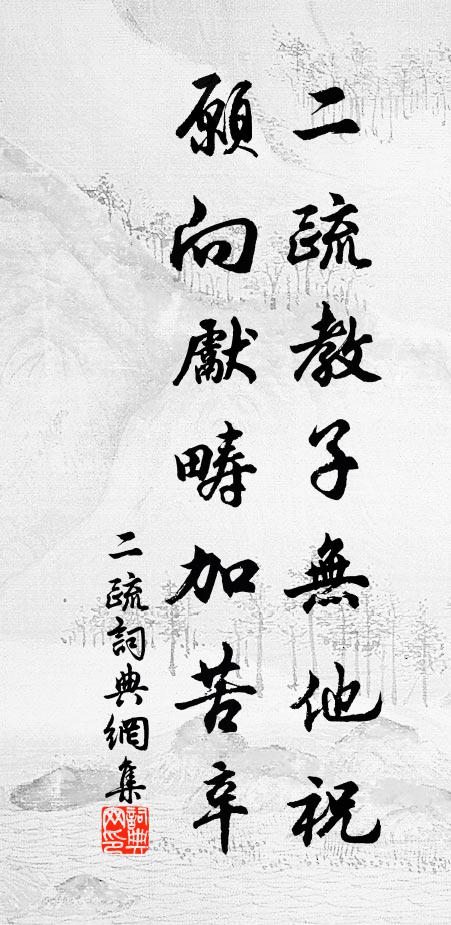 二疏教子無他祝
願向獻疇加苦辛
二疏詞典網集
詞典网印